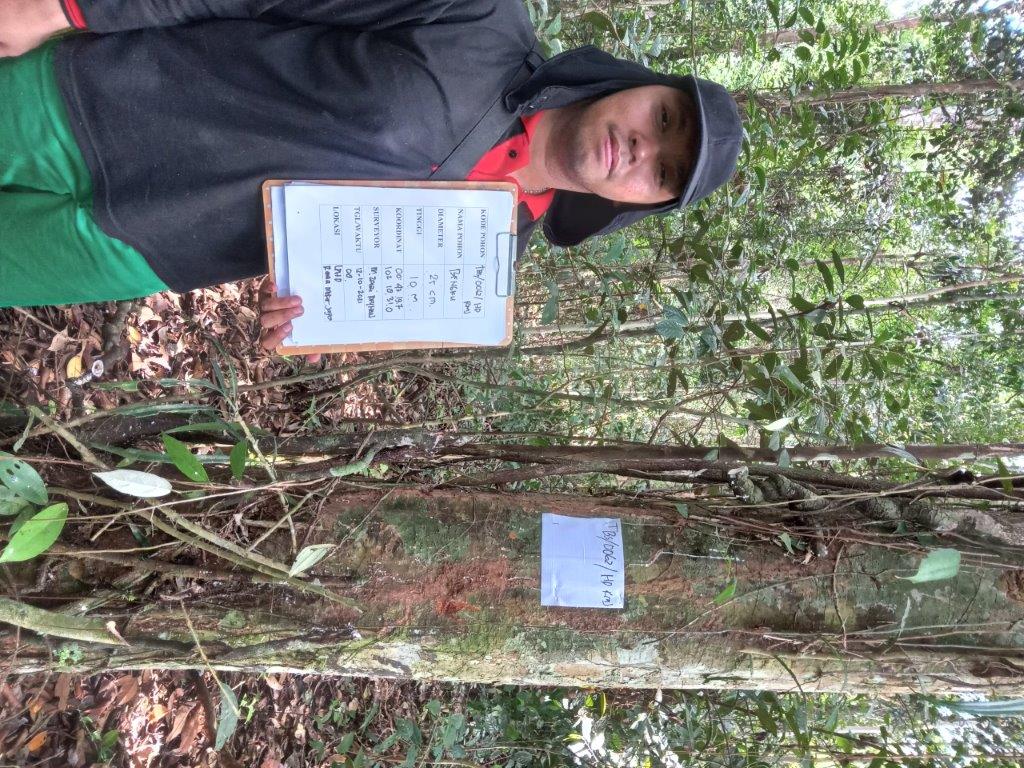 KODE POHON TBS/0062/HD
RMJ
NAMA POHON BENGKU
DIAMETER 25 cm.
TINGGI 10 M.
KOORDINAT 00 42 19.7
102 18 31.0
SURVEYOR M.
TGL/WAKTU 12-10-2021
08.
LOKASI LPHD
Rawa Mekar Jaya
TBS/0062/HD RMJ